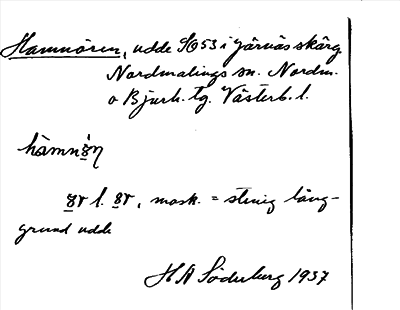 Hamnören, udde SO53 i Järnäs skärg.
Nordmalings sn. Nordm.
o Bjurh. tg. Västerb. l.
hàmnö̀n
ör l. ör, mask. = stenig lång-
grund udde
H A Söderberg 1937